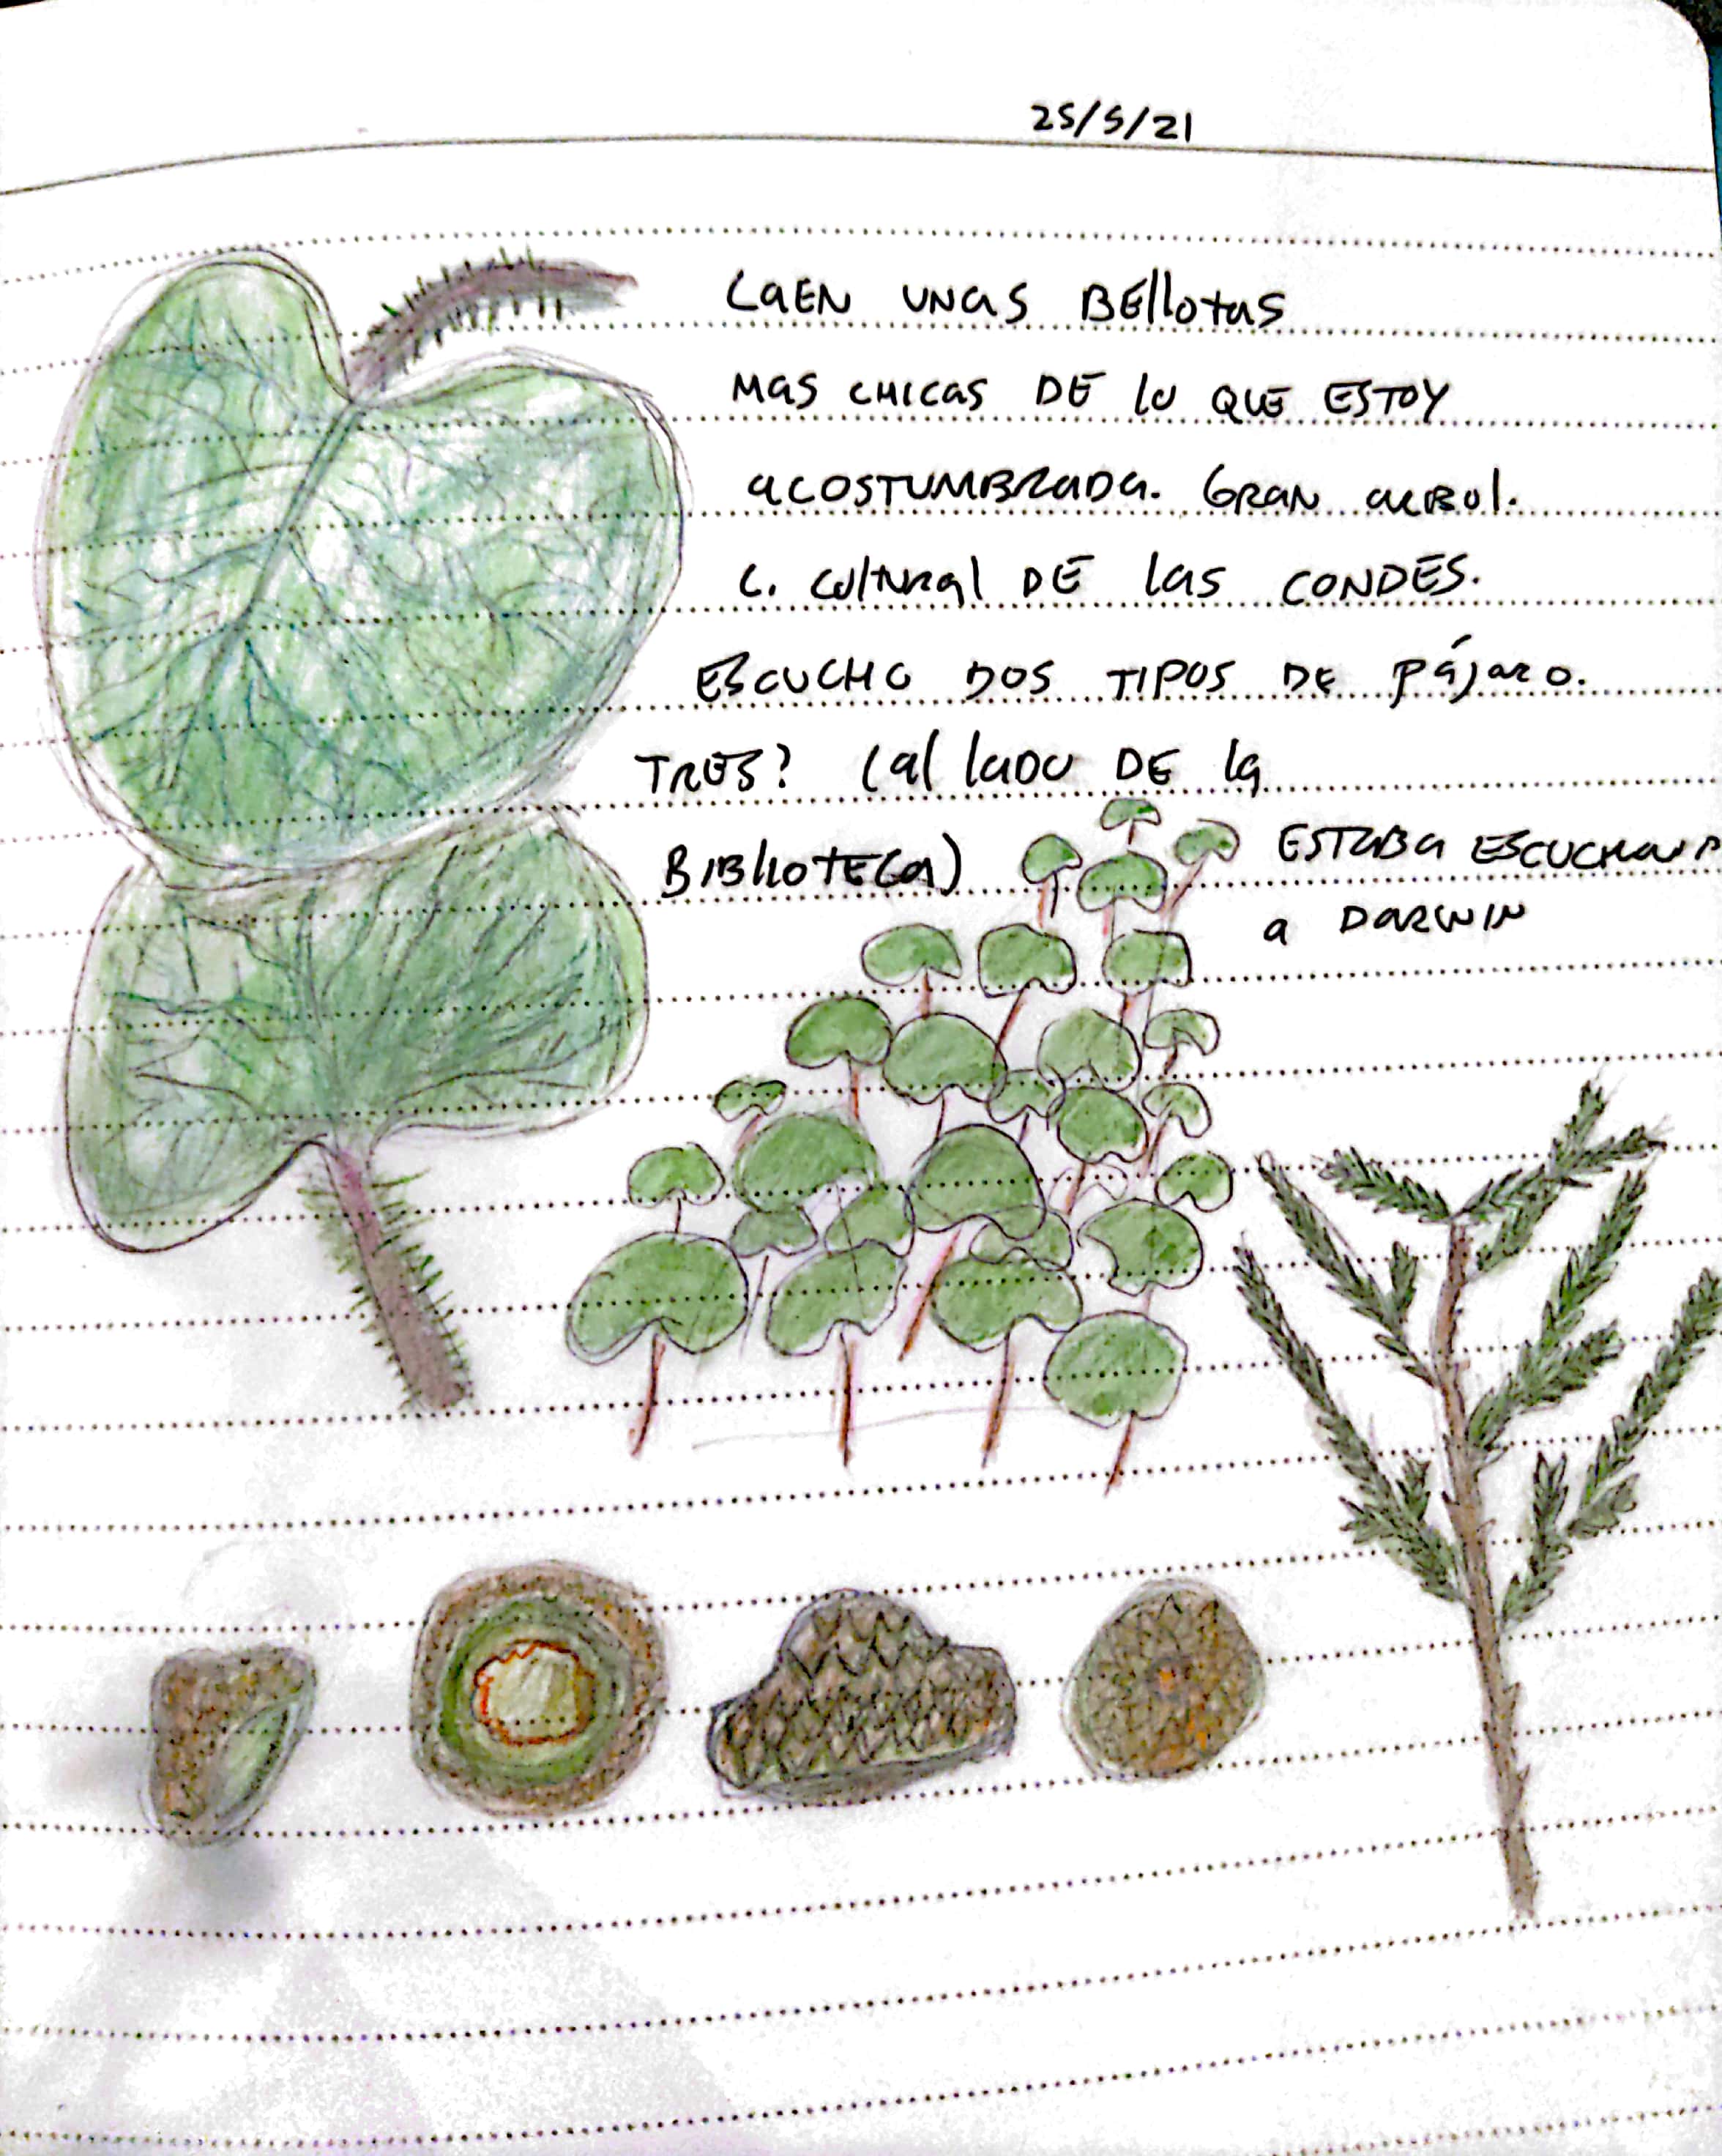 25/5/21
Caen unas bellotas
mas chicas de lo que estoy
acostumbrada. Gran arbol.
C. Cultural de las Condes.
Escucho dos tipos de pájaro.
Tres? (al lado de la
Biblioteca)
Estaba
a Darwin